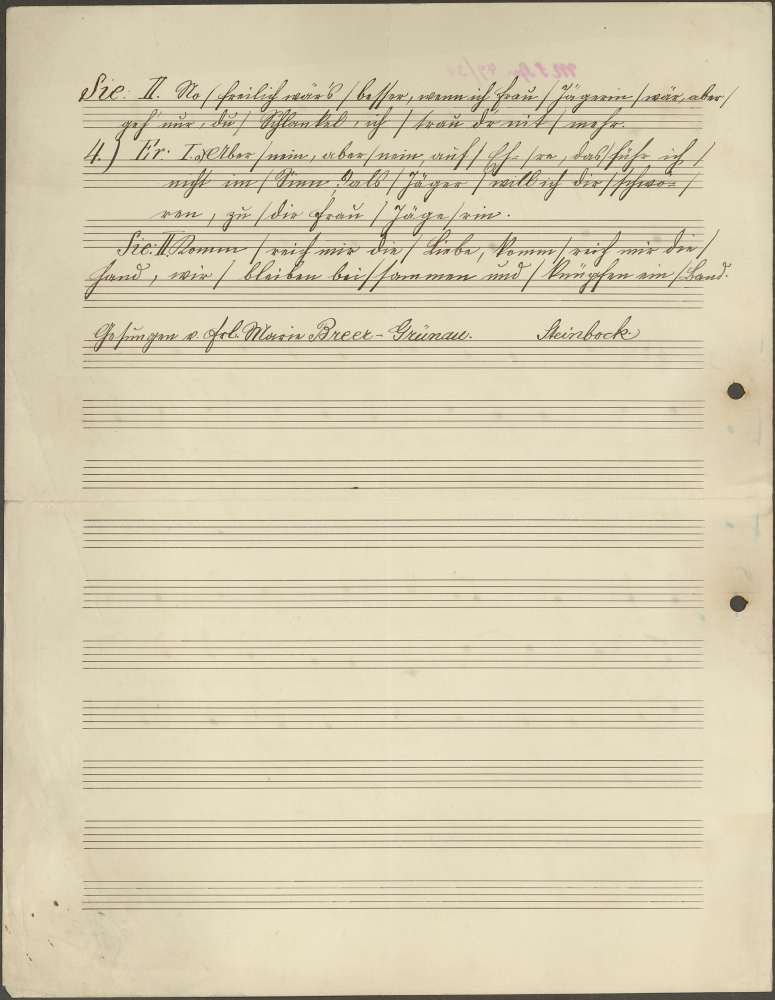 Sie: II. No / freilich wär's / besser, wenn ich Frau / Jägerin / wär, aber /
geh' nur, du / Schlankel, ich / trau dr nit / mehr.
4.) Er: I. Aber / nein, aber / nein, auf / Eh- / re, das / führ ich /
nicht im / Sinn, als / Jäger / will ich dir / schwö- /
ren, zu / die Frau / Jäge / rin.
Sie: II. Komm / reich mir die / Liebe, komm / reich mir die /
Hand, wir / bleiben bei / sammen und / knüpfen ein / Band.
Gesungen v. Frl. Marie Breer - Grünau. Steinbock